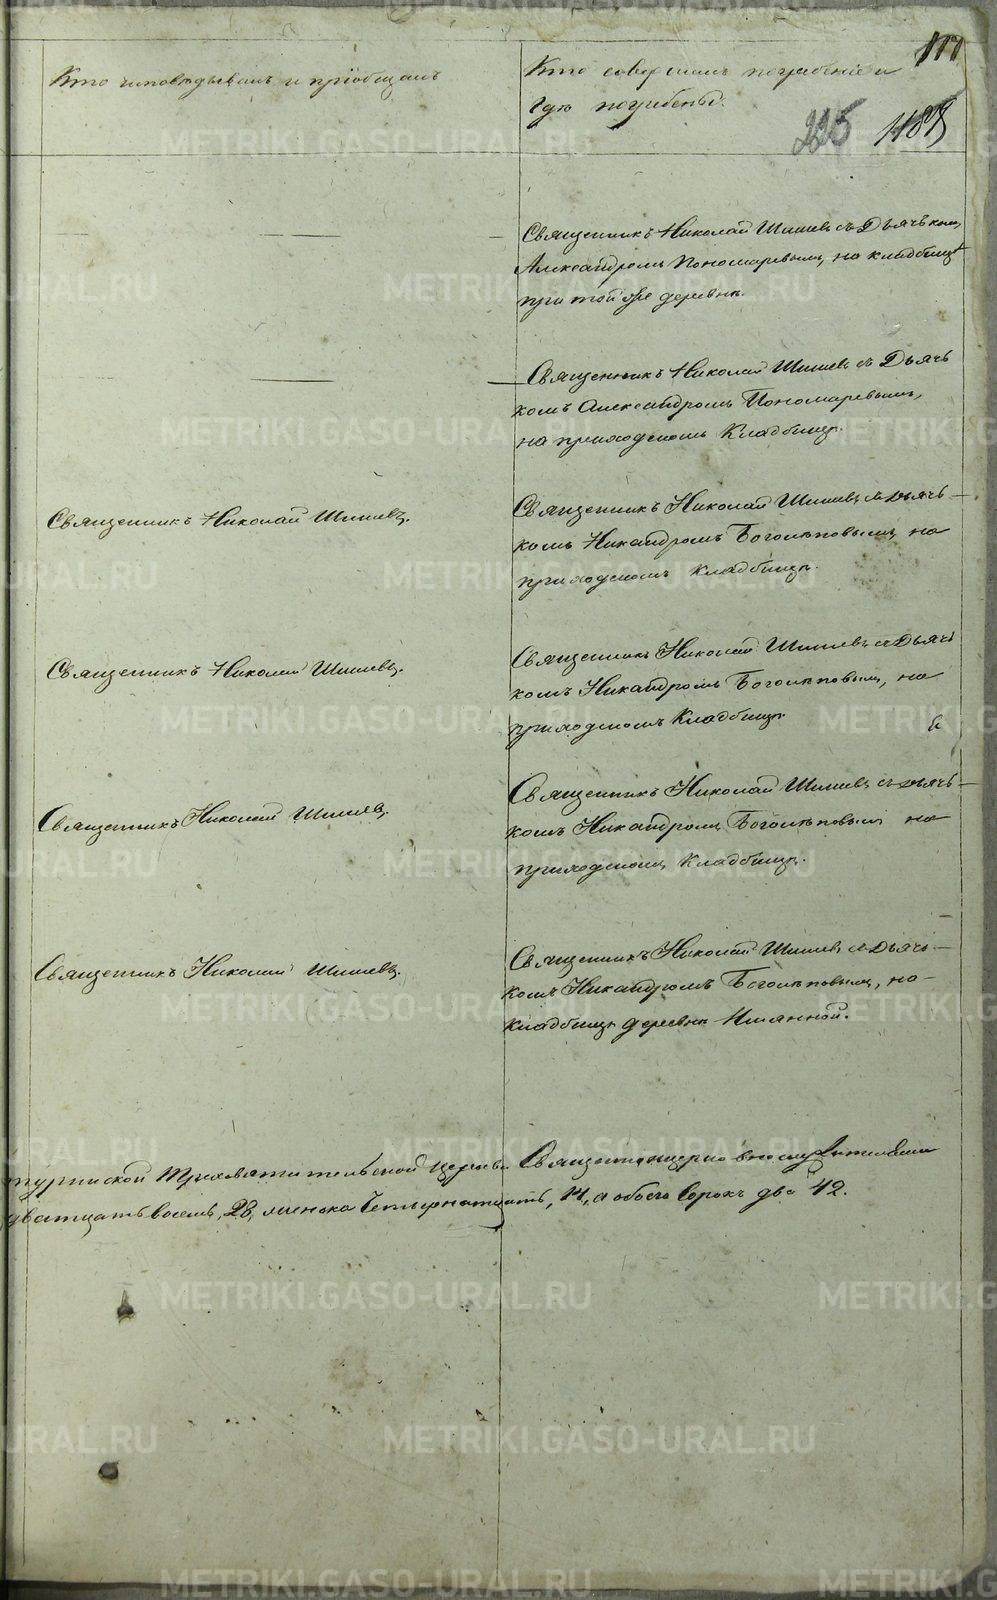 Кто исповѣдывалъ и пріобщалъ
Кто совершалъ погребеніе и
гдѣ погребены.
225
Священникъ Николай Шишевъ съ Дьячкомъ
Александромъ Пономаревымъ, на кладбищѣ
при той же деревнѣ.
Священникъ Николай Шишевъ съ Дьячь
комъ Александромъ Пономаревымъ,
на приходскомъ Кладбищѣ.
Священникъ Николай Шишевъ.
Священникъ Николай Шишевъ съ дьячь-
комъ Никандромъ Боголѣповымъ на
приходскомъ кладбищѣ.
Священникъ Николай Шишевъ.
Священникъ Николай Шишевъ съ Дьячь
комъ Никандромъ Боголѣповымъ, на
приходскомъ Кладбищѣ.
Священникъ Николай Шишевъ.
Священникъ Николай Шишевъ съ дьячь-
комъ Никандромъ Боголѣповымъ на
приходскомъ Кладбищѣ.
Священникъ Николай Шишевъ.
Священникъ Николай Шишевъ съ Дьячь-
комъ Никандромъ Боголѣповымъ, на-
кладбищѣ деревни
Трехсвятительской церкви Священно
дватцать восемь, 28, женска Четырнатцать, 14, а обоего Сорокъ два 42.
METRIKI.GASO-URAL.RU